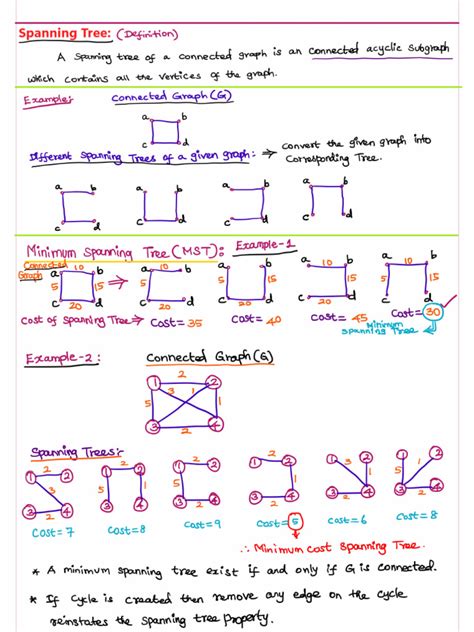 Spanning Tree: (Definition)
A Spanning tree of a connected graph is an connected acyclic Subgraph
which contains all the vertices of the graph.
Example: Connected Graph (G)
a b
c d
Different Spanning Trees of a given graph: ⇒ Convert the given graph into
Corresponding Tree.
a b a b a b a b
c d c d c d c d
Minimum Spanning Tree (MST): Example-1
Connected Graph
a 10 b ⇒ a 10 b a b a 10 b a 10 b
5 15 5 5 15 15 5 15
c 20 d c 20 d c 20 d c 20 d c d
Cost of Spanning Tree ⇒ Cost = 35 Cost = 40 Cost = 45 Cost = 30
Minimum
Spanning Tree
Example-2: Connected Graph (G)
1 2 2
5 3 1 1
3 2 4
Spanning Trees:-
Cost = 7 Cost = 8 Cost = 9 Cost = 5 Cost = 6 Cost = 8
∴ Minimum Cost Spanning Tree.
* A minimum spanning tree exist if and only if G is connected.
* If Cycle is created then remove any edge on the cycle
reinstates the spanning tree property.